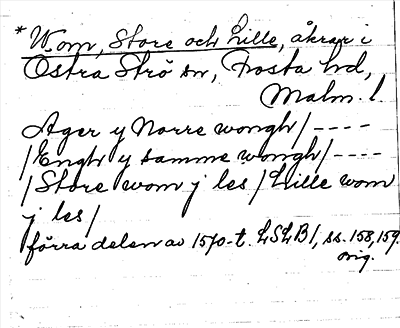 *Wom, Store och Lille, åkrar i
Östra Strö sn, Frosta hd,
Malm. l.
Ager y Norre wongh/----
/Engh y samme wongh/----
/Store wom j les/Lille wom
j les/
förra delen av 1570-t. LSLB1, ss. 158, 159.
orig.